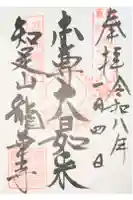 奉拝
令和八年
一月四日
本尊大日如来
知足山龍華寺